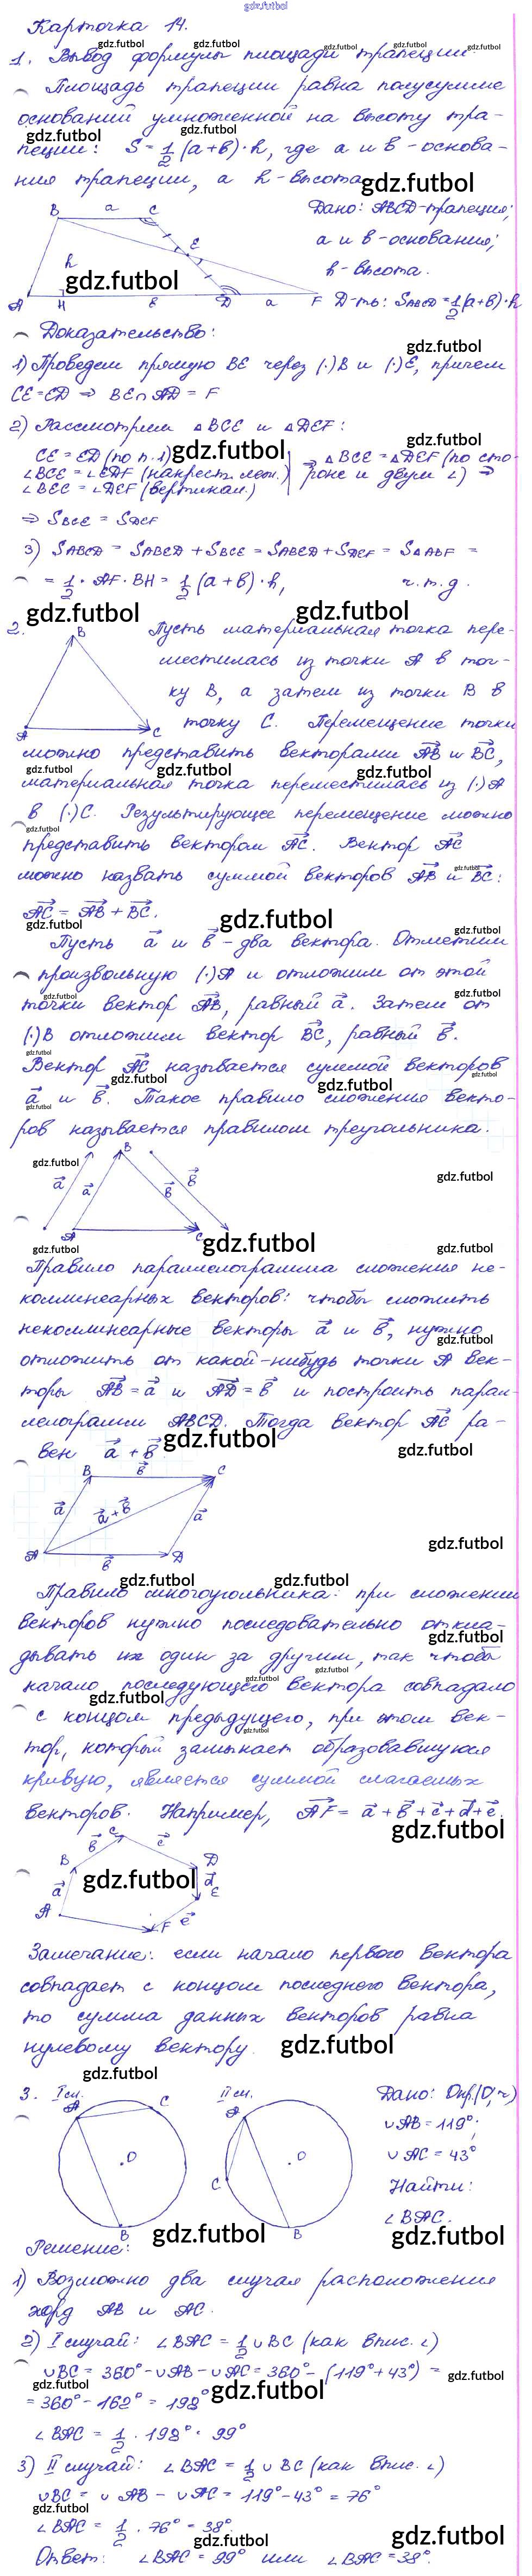 gdz.futbol
Карточка 14.
1. Вывод формулы площади трапеции.
Площадь трапеции равна полусумме
оснований умноженной на высоту тра-
пеции: S = 1/2 (a+b)·h, где a и b - основа-
ния трапеции, а h - высота
Дано: ABCD - трапеция;
a и b - основания;
h - высота.
Д-ть: SABCD = 1/2 (a+b)·h
B a C
E
h
A H b D a F
Доказательство:
1) Проведем прямую BE через (·)B и (·)E, причем
CE = ED ⇒ BE∩AD = F
2) Рассмотрим △BCE и △DEF:
CE = ED (по п.1)
∠BCE = ∠EDF (накрест леж.)
∠BEC = ∠DEF (вертикал.)
⇒ △BCE = △DEF (по сто-
роне и двум ∠) ⇒
⇒ SBCE = SDEF
3) SABCD = SABED + SBCE = SABED + SDEF = S△ABF =
= 1/2 · AF · BH = 1/2 (a+b)·h, ч.т.д.
2. Пусть материальная точка пере-
местилась из точки A в точ-
ку B, а затем из точки B в
точку C. Перемещение точки
можно представить векторами AB и BC,
материальная точка переместилась из (·)A
в (·)C. Результирующее перемещение можно
представить вектором AC. Вектор AC
можно назвать суммой векторов AB и BC:
AC = AB + BC.
Пусть a и b - два вектора. Отметим
произвольную (·)A и отложим от этой
точки вектор AB, равный a. Затем от
(·)B отложим вектор BC, равный b.
Вектор AC называется суммой векторов
a и b. Такое правило сложения векто-
ров называется правилом треугольника.
a a B b b
A C
Правило параллелограмма сложения не-
коллинеарных векторов: чтобы сложить
неколлинеарные векторы a и b, нужно
отложить от какой-нибудь точки A век-
торы AB = a и AD = b и построить парал-
лелограмм ABCD. Тогда вектор AC ра-
вен a + b
B b C
a a+b a
A b D
Правило многоугольника: при сложении
векторов нужно последовательно откла-
дывать их один за другим, так чтобы
начало последующего вектора совпадало
с концом предыдущего, при этом век-
тор, который замыкает образовавшуюся
кривую, является суммой слагаемых
векторов. Например, AF = a + b + c + d + e.
B b C c D
a d E
A F e
Замечание: если начало первого вектора
совпадает с концом последнего вектора,
то сумма данных векторов равна
нулевому вектору.
3. I сл. II сл.
A C O B
A C O B
Дано: Окр.(O; r)
∪AB = 119°;
∪AC = 43°
Найти:
∠BAC.
Решение:
1) Возможно два случая расположения
хорд AB и AC.
2) I случай: ∠BAC = 1/2 ∪BC (как впис. ∠)
∪BC = 360° - ∪AB - ∪AC = 360° - (119° + 43°) =
= 360° - 162° = 198°
∠BAC = 1/2 · 198° = 99°
3) II случай: ∠BAC = 1/2 ∪BC (как впис. ∠)
∪BC = ∪AB - ∪AC = 119° - 43° = 76°
∠BAC = 1/2 · 76° = 38°.
Ответ: ∠BAC = 99° или ∠BAC = 38°.